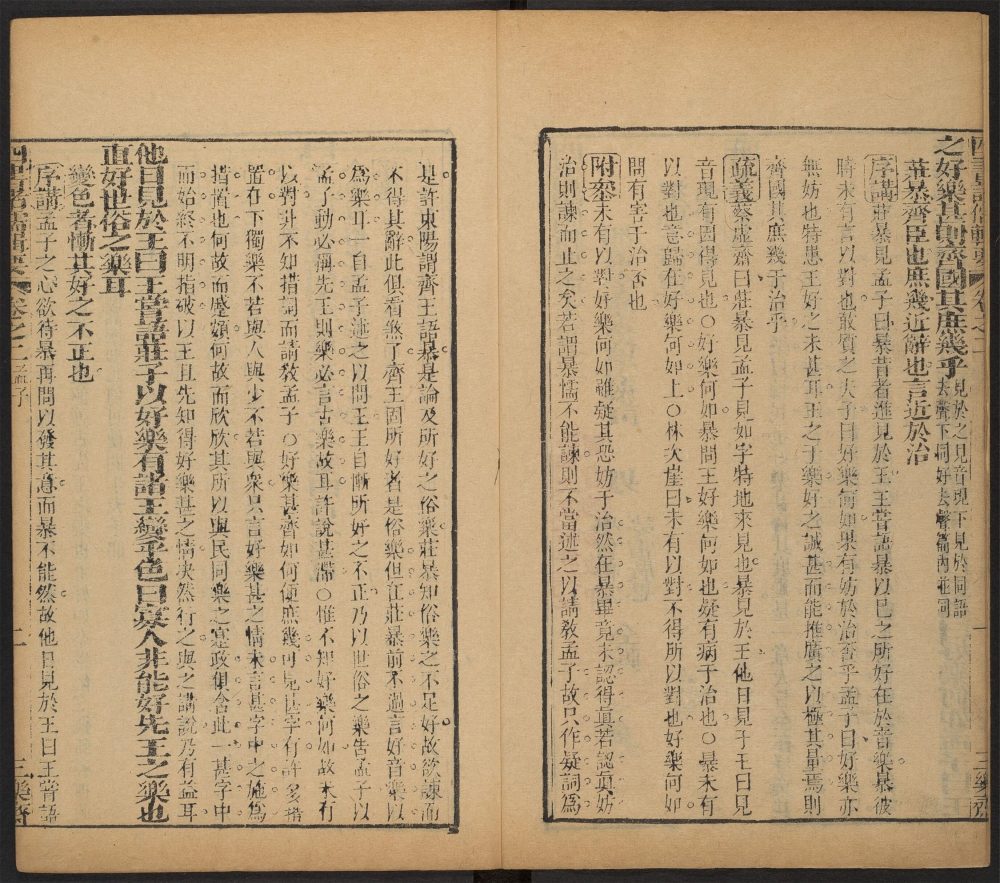 之好樂甚則齊國其庶幾乎見於之見音現下見於同語去聲下同好去聲篇內並同
莊暴齊臣也庶幾近辭也言近於治
序講莊暴見孟子曰暴昔者進見於王王嘗語暴以己之所好在於音樂暴彼
時未有言以對也敢質之夫子曰好樂何如果有妨於治否乎孟子曰好樂亦
無妨也特患王好之未甚耳王之于樂好之誠甚而能推廣之以極其量焉則
齊國其庶幾于治乎
疏義蔡虛齋曰莊暴見孟子見如字特地來見也暴見於王他日見于王曰見
音現有因得見也○好樂何如暴問王好樂何如也疑有病于治也○暴未有
以對也意歸在好樂何如上○林次崖曰未有以對不得所以對也好樂何如
問有害于治否也
附案未有以對好樂何如雖疑其恐妨于治然在暴畢竟未認得真若認真妨
治則諫而止之矣若謂暴懦不能諫則不當述之以請教孟子故只作疑詞為
是許東陽謂齊王語暴是論及所好之俗樂莊暴知俗樂之不足好故欲諫而
不得其辭此俱看煞了齊王固所好者是俗樂但在莊暴前不過言好音樂以
為樂耳自孟子述之以問王王自慚所好之不正乃以世俗之樂告孟子以
孟子動必稱先王則樂必言古樂故耳許說甚滯○惟不知好樂何如故未有
以對非不知措詞而請教孟子○好樂甚齊如何便庶幾可見甚字有許多措
置在下獨樂不若與人與少不若與衆只言好樂甚之情未言甚字中之施為
措置也何故而蹙頞何故而欣欣其所以與民同樂之寔政俱含此一甚字中
而始終不明指破以王且先知得好樂甚之情决然行之與之講說乃有益耳
他日見於王曰王嘗語莊子以好樂有諸王變乎色曰寡人非能好先王之樂也
直好世俗之樂耳
變色者慚其好之不正也
序講孟子之心欲待暴再問以發其意而暴不能然故他日見於王曰王嘗語
卷之一孟子
二
三樂齋